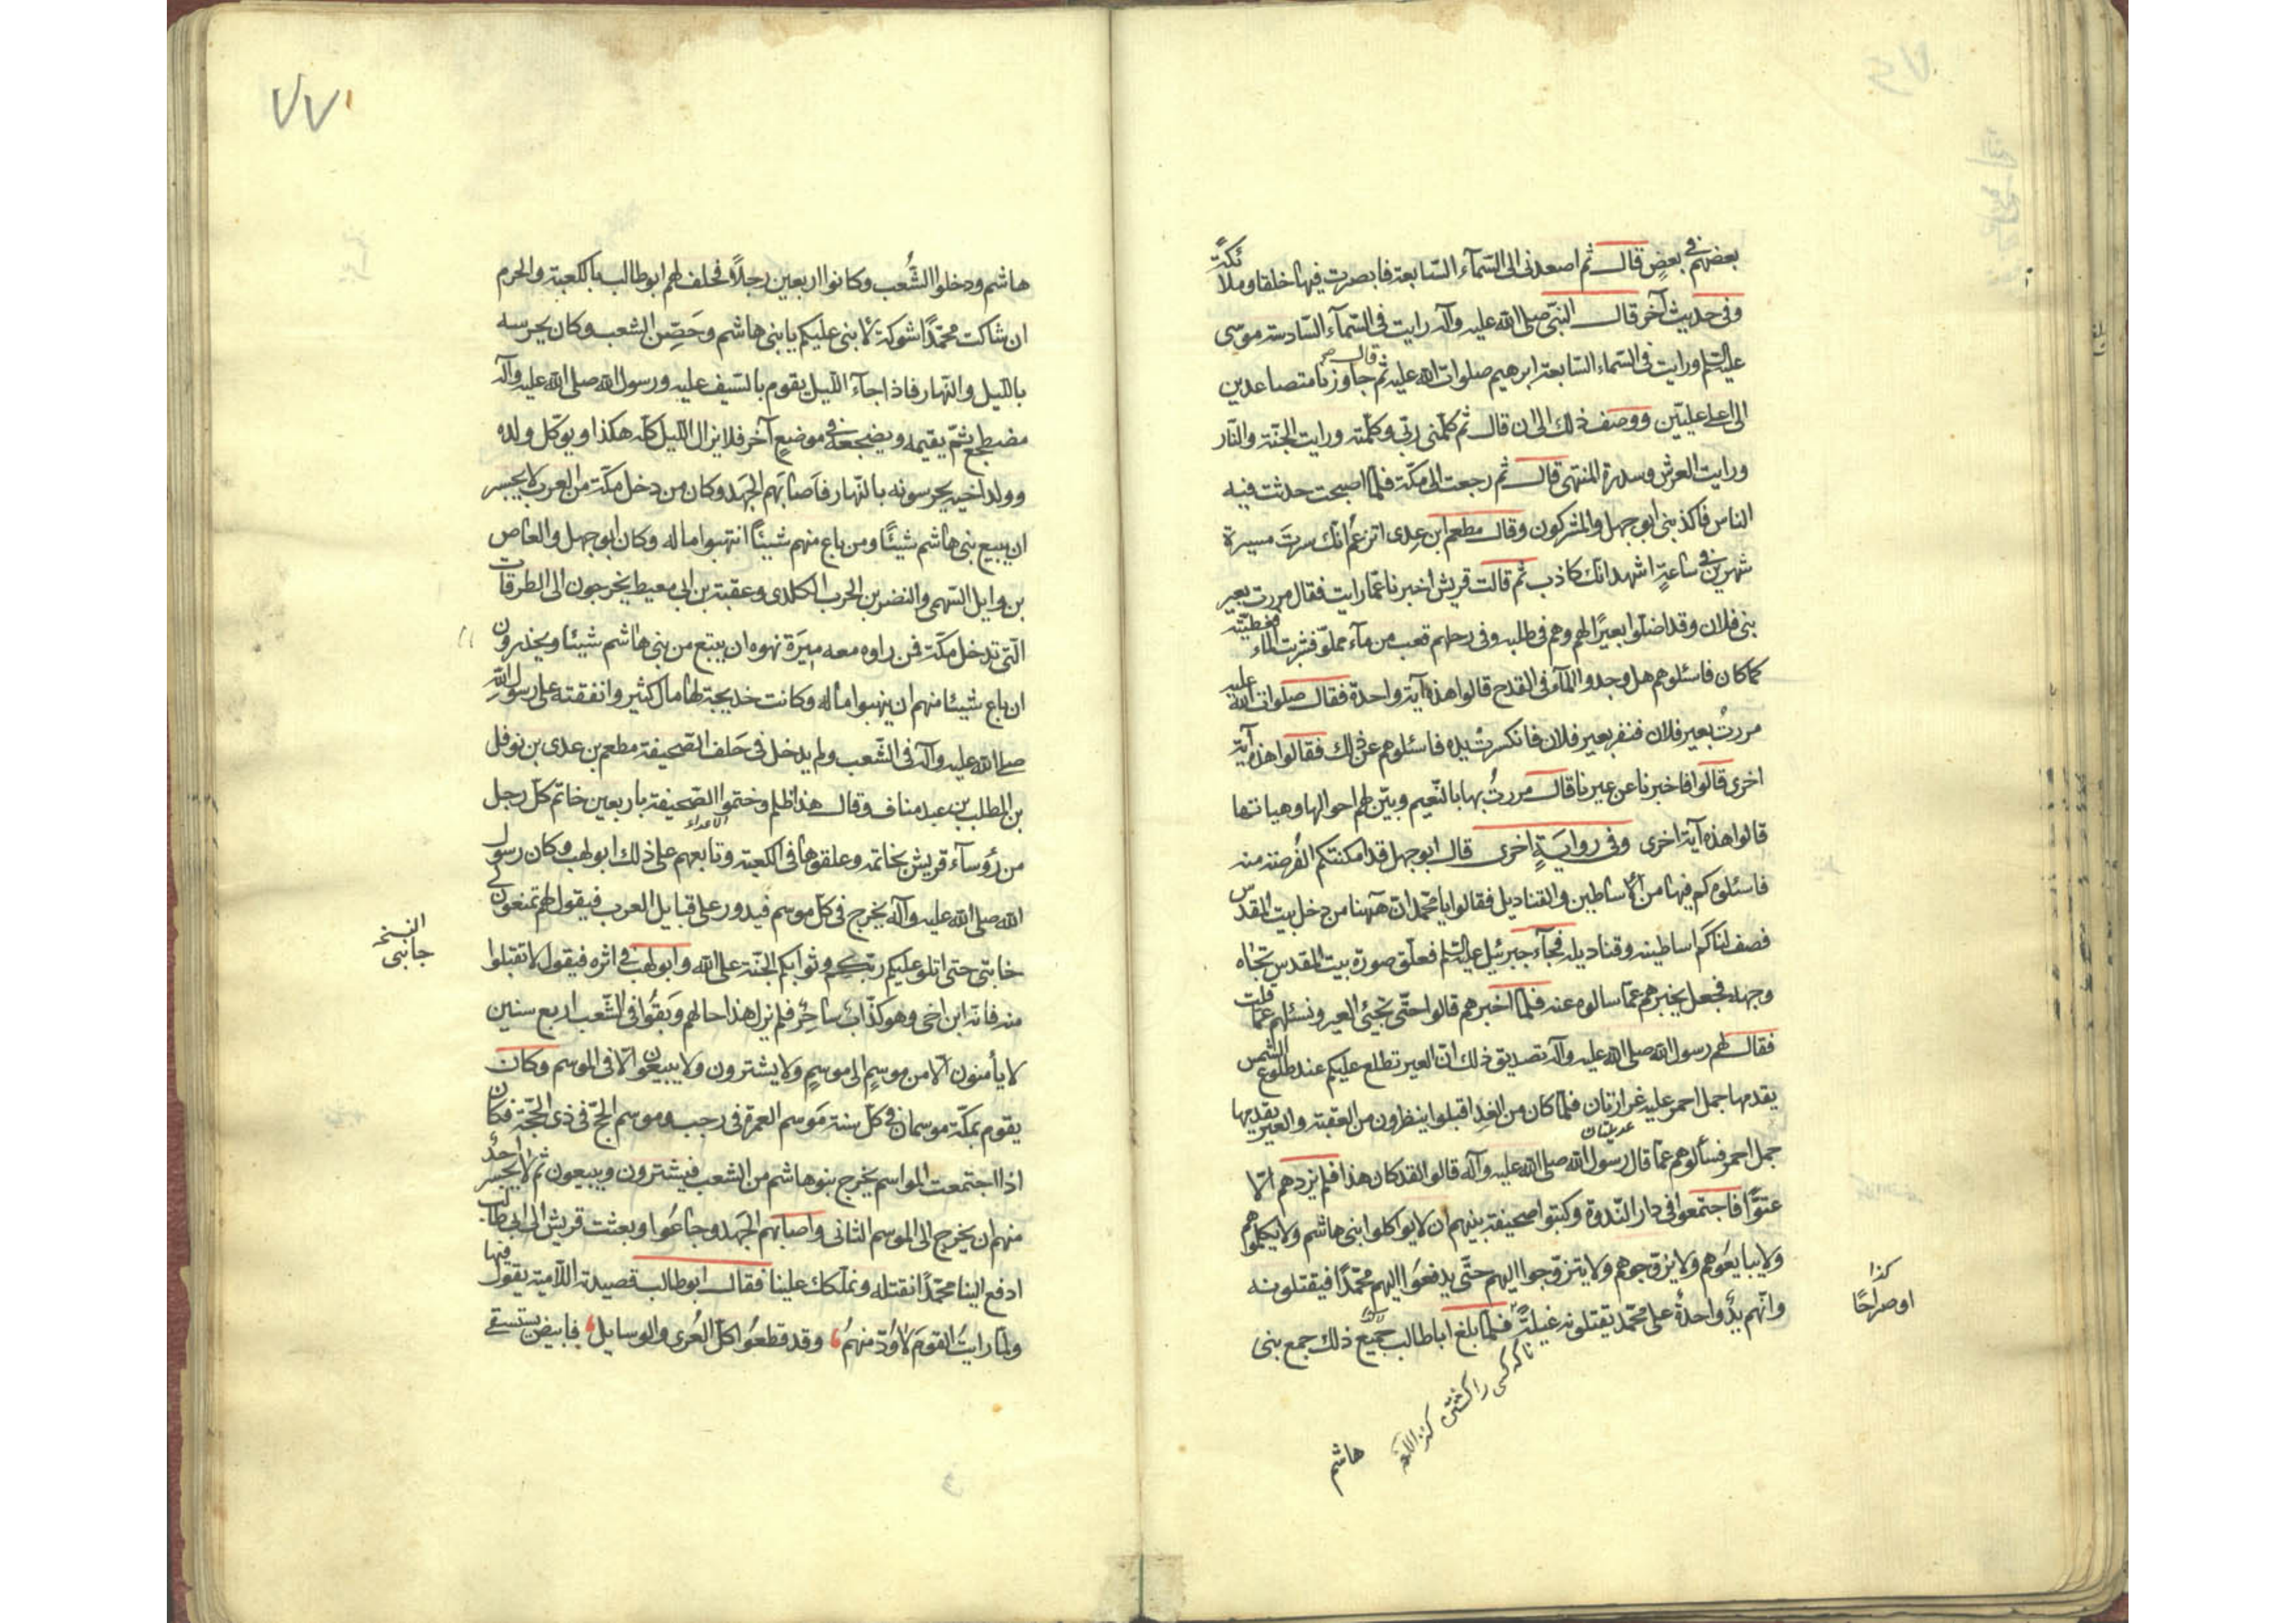 بعضهم فى بعضٍ قال ثم اصعدنى الى السّمآء السّابعة فابصرت فيها خلقا وملائكةً
وفى حديث آخر قال النّبى صلى الله عليه وآله رايت فى السّمآء السّادسة موسى
عليه السّلم ورايت فى السّماء السّابعة ابرهيم صلوات الله عليه قال ثم جاوزنا متصاعدين
الى اعلى عليّين ووصف ذلك الى ان قال ثم كلّمنى ربّى وكلّمته ورايت الجنّة والنّار
ورايت العرش وسدرة المنتهى قال ثم رجعت الى مكّة فلمّا اصبحت حدثت فيه
الناس فاكذبنى ابو جهل والمشركون وقال مطعم ابن عدى اتزعم انّك سرتَ مسيرة
شهرين فى ساعةٍ اشهد انك كاذب ثم قالت قريش اخبرنا عمّا رايت فقال مررت بعير
بنى فلان وقد اضلّوا بعيرًا لهم وهم فى طلبه وفى رحلهم قعب من مآء مملوّ فشربت الماء فغطيته
كما كان فاسئلوهم هل وجدوا المآء فى القدح قالوا هذه آية واحدة فقال صلوات الله عليه
مررتُ بعير فلان فنفر بعير فلان فانكسرت يده فاسئلوهم عن ذلك فقالوا هذه آية
اخرى قالوا فاخبرنا عن عيرنا قال مررتُ بها بالتّنعيم وبيّن لهم احوالها وهياتها
قالوا هذه آية اخرى وفى روايةٍ اخرى قال ابو جهل قد امكنتكم الفُرصة منه
فاسئلوه كم فيها من الأساطين والقناديل فقالوا يا محمّد انّ هٰهنا من دخل بيت المقدس
فصف لنا كم اساطينه وقناديله فجآء جبرئيل عليه السّلم فعلّق صورة بيت المقدس تجاه
وجهه فجعل يخبرهم عمّا سالوه عنه فلمّا اخبرهم قالوا حتّى تجيئ العير ونسئلهم عمّا قلت
فقال لهم رسول الله صلى الله عليه وآله تصديق ذلك انّ العير تطلع عليكم عند طلوع الشمس
يقدمها جمل احمر عليه غرارتان فلمّا كان من الغد اقبلوا ينظرون من العقبة والعير يقدمها
جمل احمر فسألوهم عمّا قال رسول الله صلى الله عليه وآله قالوا لقد كان هذا فلم يزدهم الّا
عتوًّا فاجتمعوا فى دار النّدوة وكتبوا صحيفة بينهم ان لا يواكلوا بنى هاشم ولا يكلّموهم
ولا يبايعوهم ولا يزوّجوهم ولا يتزوّجوا اليهم حتّى يدفعوا اليهم محمّدًا فيقتلونه
وانّهم يدٌ واحدة على محمّد يقتلونه غيلةً فلمّا بلغ اباطالب جميع ذلك جمع بنى
كذا
او صراحًا
ناكه كسى را كشتن كنز اللغه
هاشم
٧٧
هاشم ودخلوا الشُعب وكانوا اربعين رجلًا فحلف لهم ابوطالب بالكعبة والحرم
ان شاكت محمّدًا شوكة لاٰبنى عليكم يا بنى هاشم وحَصّن الشعب وكان يحرسه
بالليل والنّهار فاذا جآء اللّيل يقوم بالسّيف عليه ورسول الله صلى الله عليه وآله
مضطجع ثمّ يقيمه ويضجعه فى موضعٍ آخر فلا يزال اللّيل كلّه هكذا ويوكّل ولده
وولد اخيه يحرسونه بالنّهار فاَصابَهم الجَهد وكان من دخل مكّة من العرب لا يجسر
ان يبيع بنى هاشم شيئًا ومن باع منهم شيئًا انتهبوا ماله وكان ابو جهل والعاص
بن وايل السّهمى والنضر بن الحرب الكلدى وعقبة بن ابى معيط يخرجون الى الطرقات
الّتى تدخل مكّة فمن راوه معه ميرَة نهوه ان يبتع من بنى هاشم شيئا ويحذرون
ان باع شيئا منهم ان ينهبوا ماله وكانت خديجة لها مال كثير وانفقته على رسول اللهِ
صلى الله عليه وآله فى الشّعب ولم يدخل فى حَلف الصّحيفة مطعم بن عدى بن نوفل
بن المطلب بن عبد مناف وقال هذا ظلم وختموا الصّحيفة باربعين خاتم كلّ رجل
من رؤسآء قريش بخاتمه وعلقوها فى الكعبة وتابعهم على ذلك ابو لهب وكان رسول
الله صلى الله عليه وآله يخرج فى كلّ موسم فيدور على قبايل العرب فيقول لهم تمنعون لى
النسخه
جانبى
خابتى حتى اتلو عليكم كتاب ربّكم وثوابكم الجنّة على الله وابو لهب فى اثره فيقول لا تقبلوا
منه فانّه ابن اخى وهو كذّاب ساحِر فلم يزل هذا حالهم وَبَقُوا فى الشّعب اربع سنين
لا يأمنون الّا من موسمٍ الى موسمٍ ولا يشترون ولا يبيعون الّا فى الموسم وكان
يقوم بمكّة موسمان فى كلّ سنة مَوسم العمرة فى رجب وموسم الحجّ فى ذى الحجّة فكان
اذا اجتمعت المواسم يخرج بنو هاشم من الشعب فيشترون ويبيعون ثم لا يجسر احدٌ
منهم ان يخرج الى الموسم الثانى واصابهم الجَهد وجاعُوا وبعثت قريش الى ابى طالب
ادفع الينا محمّدًا نقتله ونملّكك علينا فقال ابوطالب قصيدته اللّاميّة يقول فيها
ولمّا رايتُ القومَ لا وُدّ منهمُ وقد قطعُوا كلّ العُرى والوسايل فابيض يستسقى